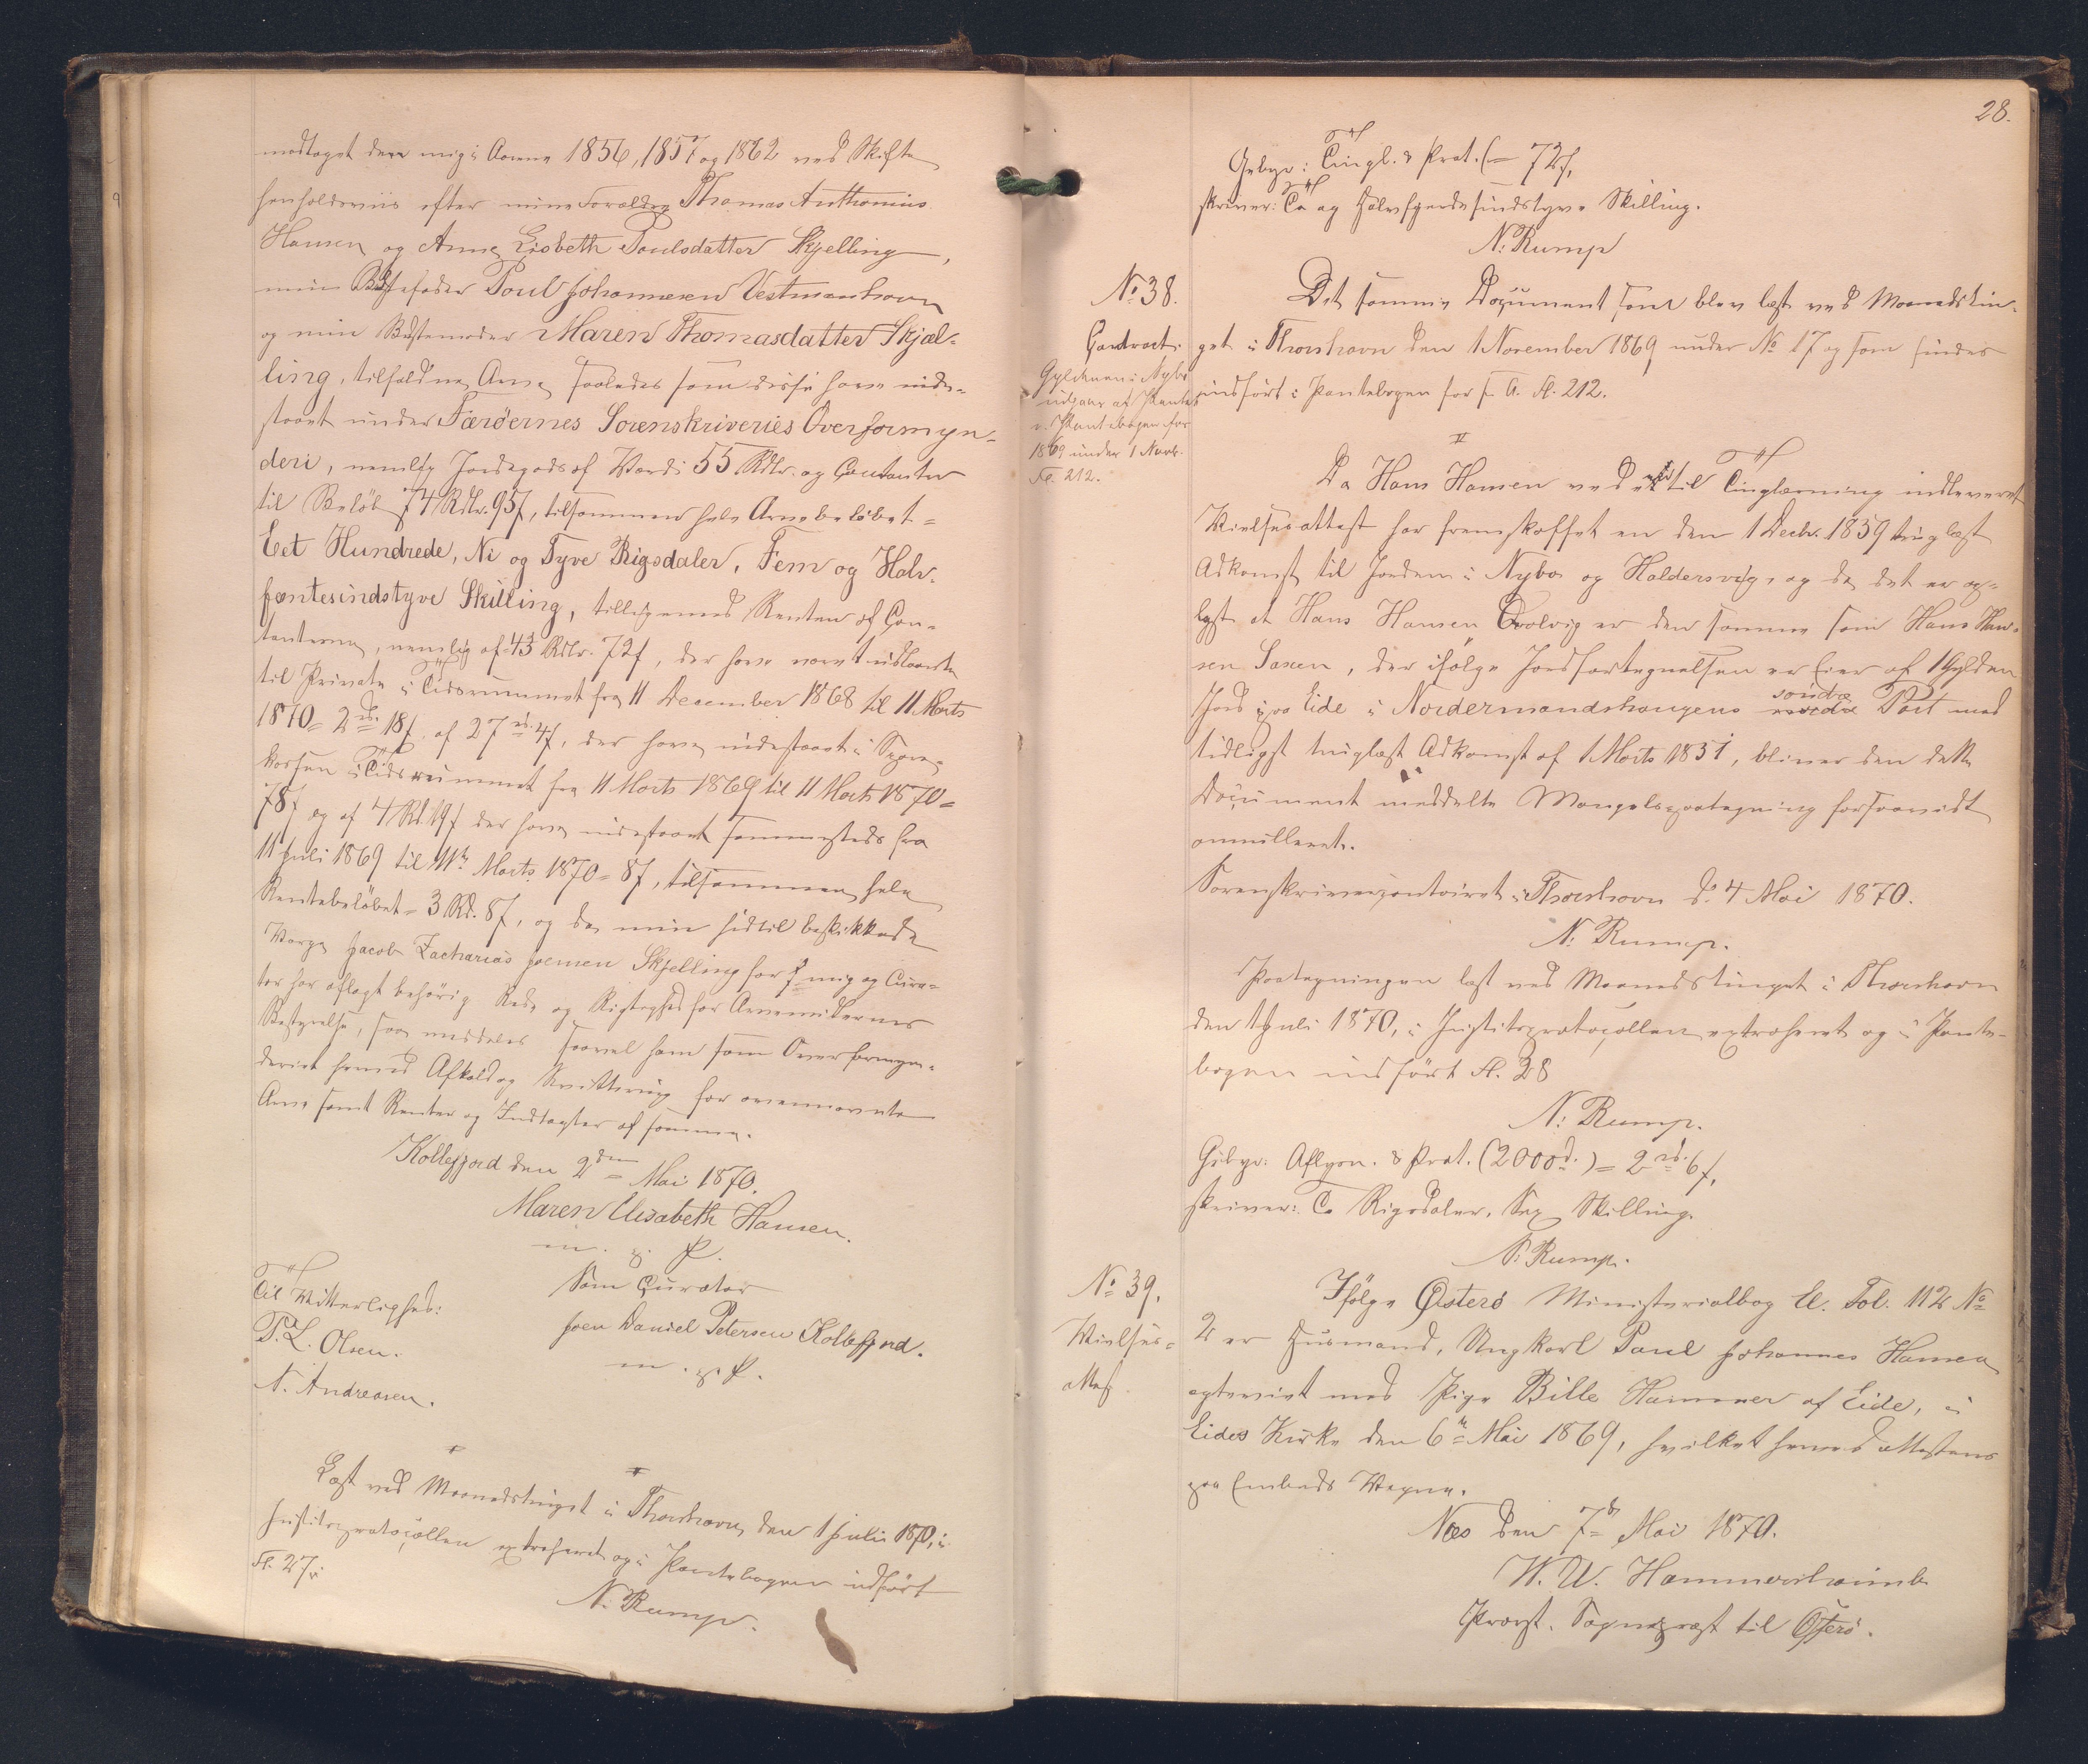 modtaget den mig i Aarene 1856, 1857 og 1862 ved Skifte
henholdsviis efter mine Forældre Thomas Anthonius
Hansen og Anne Lisbeth Poulsdatter Skjelling,
min Bedstefader Poul Johannesen Vestmanhavn
og min Bedstemoder Maren Thomasdatter Skjæl-
ling, tilfaldne Arv, saaledes som disse have inde-
staaet under Færøernes Sorenskriveries Overformyn-
deri, nemlig Jordegods af Værdi 55 Rdlr. og Contanter
til Beløb 74 Rdlr. 95 ſ, tilsammen hele Arvebeløbet =
Eet Hundrede, Ni og Tyve Rigsdaler, Fem og Halv-
femtesindstyve Skilling, tilligemed Renten af Con-
tanterne, nemlig af 43 Rdlr. 72 ſ, der have været udlaante
til Private i Tidsrummet fra 11 December 1868 til 11 Marts
1870 = 2 rd. 18 ſ, af 27 rd. 4 ſ, der have indestaaet i Spare-
kassen i Tidsrummet fra 11 Marts 1869 til 11 Marts 1870 =
78 ſ og af 4 Rd. 19 ſ der have indestaaet sammesteds fra
11 Juli 1869 til 11te Marts 1870 = 8 ſ, tilsammen hele
Rentebeløbet = 3 Rd. 8 ſ, og da min hidtil beskikkede
Værge Jacob Zacharias Joensen Skjelling for mig og Cura-
tor har aflagt behørig Rede og Rigtighed for Arvemidlernes
Bestyrelse, saa meddeles saavel ham som Overformyn-
deriet herved Afkald og Kvittering for ovennævnte
Arv samt Renter og Indtægter af samme.
Kollefjord den 2den Mai 1870.
Maren Elisabeth Hansen.
m. p. P.
Til Vitterlighed:
Som Curator
P. L. Olsen.
Joen Daniel Petersen Kollefjord.
m. p. P.
N. Andreasen.
Læst ved Maanedstinget i Thorshavn den 1 Juli 1870, i
Justitsprotocollen extraheret og i Pantebogen indført
Fl. 27.
N. Rump.
28.
Gebyr: Tingl. & Prot. (= 72 ſ,
skriver: To og Halvfjerdesindstyve Skilling.
N. Rump
No 38.
Contract.
Det samme Document som blev læst ved Maanedstin-
get i Thorshavn den 1 November 1869 under No 17 og som findes
indført i Pantebogen for f. A. Fl. 212.
Gylden i Nybo
udgaar af Pantet
v. Pantebogen for
1869 under 1 Novb.
Fl. 212.
Da Hans Hansen ved til Tinglæsning indleveret
Vielsesattest har fremskaffet en den 1 Decbr. 1859 tinglæst
Adkomst til Jorden i Nybo og Haldersvig, og da det er op-
lyst at Hans Hansen Qvolvig er den samme som Hans Han-
sen Saxen, der ifølge Jordfortegnelsen er Eier af 1 Gylden
Jord paa Eide i Nordermandshaugens nordre søndre Part med
tidligst tinglæst Adkomst af 1 Marts 1851, bliver den dette
Document meddelte Mangelspaategning forsaavidt
annulleret.
Sorenskrivercontoiret i Thorshavn d. 4 Mai 1870.
N. Rump.
Paategningen læst ved Maanedstinget i Thorshavn
den 1 Juli 1870, i Justitsprotocollen extraheret og i Pante-
bogen indført Fl. 28
N. Rump.
Gebyr: Aflysn. & Prot. (200 rd.) = 2 rd. 6 ſ,
skriver: To Rigsdaler, Sex Skilling.
N. Rump.
No 39.
Vielses-
attest
Ifølge Østerø Ministerialbog Fol. 112 No
2 er Husmand, Ungkarl Paul Johannes Hansen
ægteviet med Pige Bille Hammer af Eide, i
Eides Kirke den 6te Mai 1869, hvilket herved attesteres
paa Embeds Vegne.
Næs den 7de Mai 1870.
V. U. Hammershaimb
Provst. Sognepræst til Østerø.